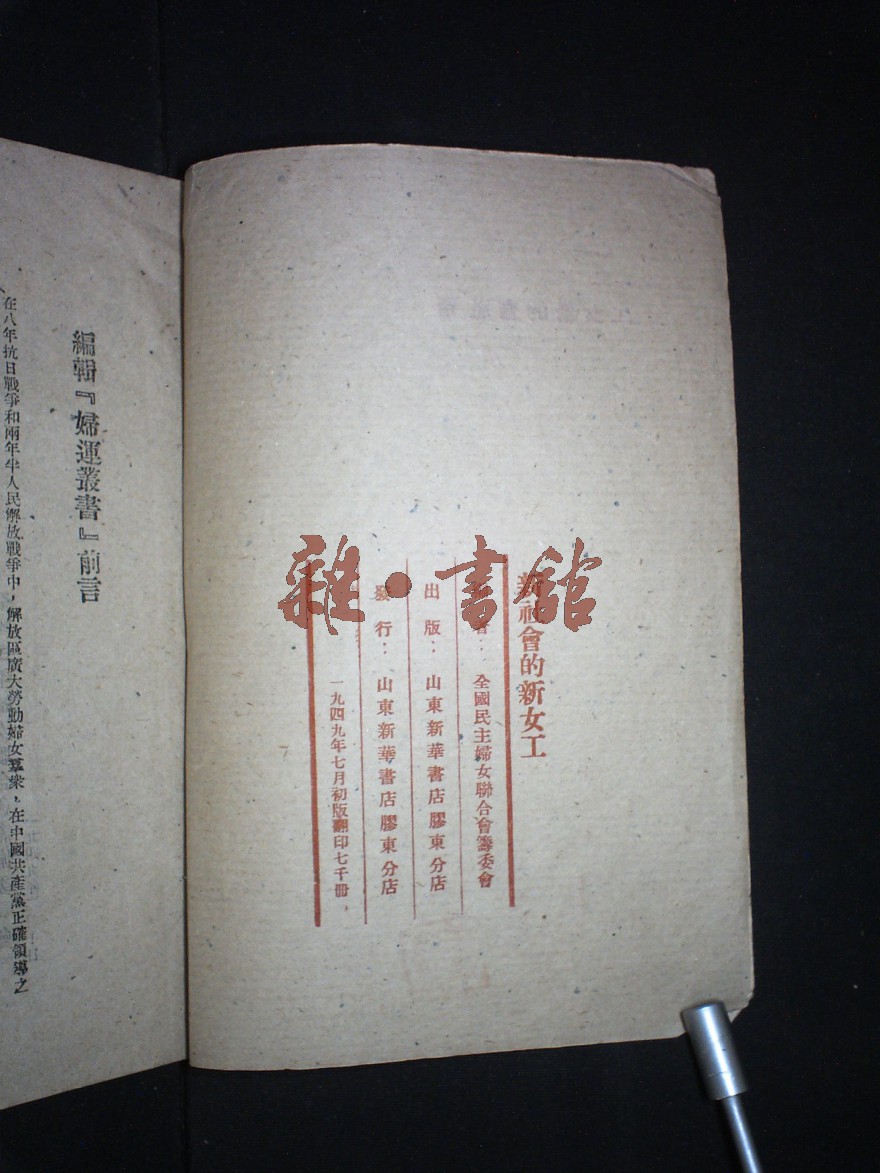 新社會的新女工
者：全國民主婦女聯合會籌委會
出版：山東新華書店膠東分店
發行：山東新華書店膠東分店
一九四九年七月初版翻印七千冊．
雜·書館
編輯『婦運叢書』前言
在八年抗日戰爭和兩年半人民解放戰爭中，解放區廣大勞動婦女羣衆，在中國共產黨正確領導之